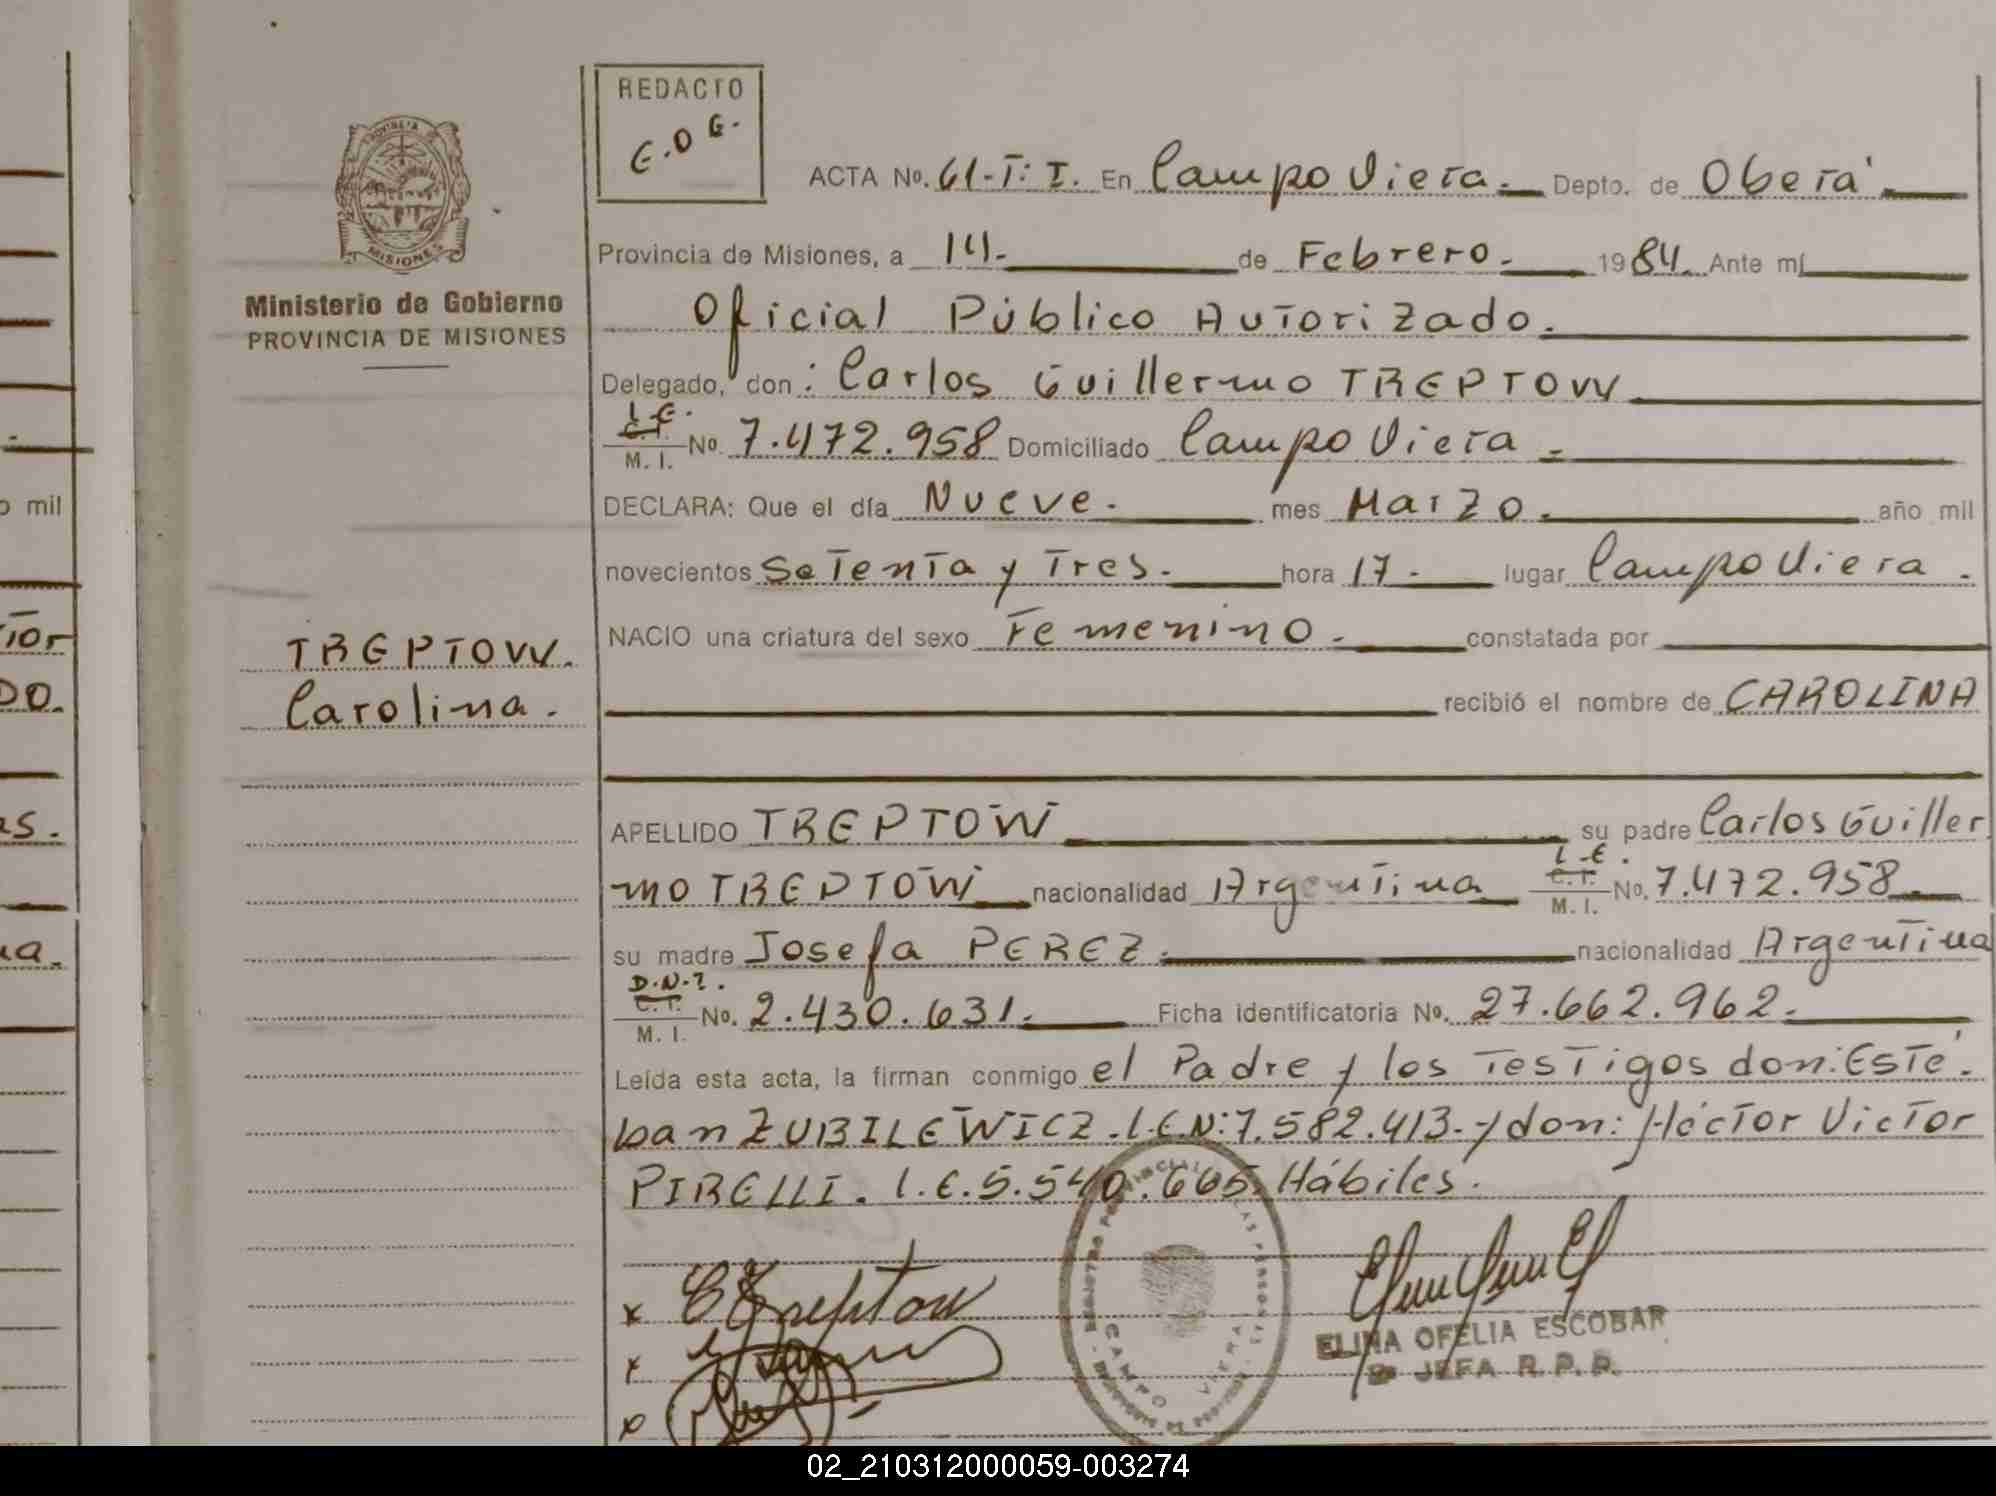 REDACTO
E.O.G.
PROVINCIA DE
MISIONES
Ministerio de Gobierno
PROVINCIA DE MISIONES
ACTA No. 61-T: I. En Campo Viera. Depto. de Oberá.
Provincia de Misiones, a 14. de Febrero. 1984. Ante mí
Oficial Público Autorizado.
Delegado, don: Carlos Guillermo TREPTOW
L.E.
C.I.
M. I. No. 7.472.958 Domiciliado Campo Viera.
DECLARA: Que el día Nueve. mes Marzo. año mil
novecientos Setenta y Tres. hora 17. lugar Campo Viera.
NACIO una criatura del sexo Femenino. constatada por
TREPTOW.
Carolina.
recibió el nombre de CAROLINA
APELLIDO TREPTOW su padre Carlos Guiller
L.E.
mo TREPTOW nacionalidad Argentina C.I. M. I. No. 7.472.958
su madre Josefa PEREZ. nacionalidad Argentina
D.N.I.
C.I.
M. I. No. 2.430.631. Ficha identificatoria No. 27.662.962.
Leída esta acta, la firman conmigo el Padre y los Testigos don: Esté.
ban ZUBILEWICZ. L.E.N: 7.582.413. y don: Héctor Victor
PIRELLI. L.E. 5.540.665. Hábiles.
x
x
x
CAMPO VIERA
ELINA OFELIA ESCOBAR
JEFA R.P.P.
o mil
Tor
DO.
as.
na.
02_210312000059-003274